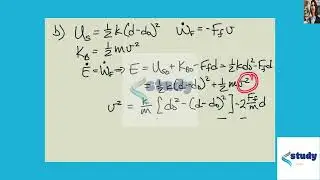 b) U_S = ½ k (d-d_0)² Ẇ_F = -F_f v
K_B = ½ m v²
Ė = Ẇ_F ⇒ E = U_S0 + K_B0 - F_f d = ½ k d_0² - F_f d
= ½ k (d-d_0)² + ½ m v²
v² = k/m [d_0² - (d-d_0)²] - 2 F_f/m d
study